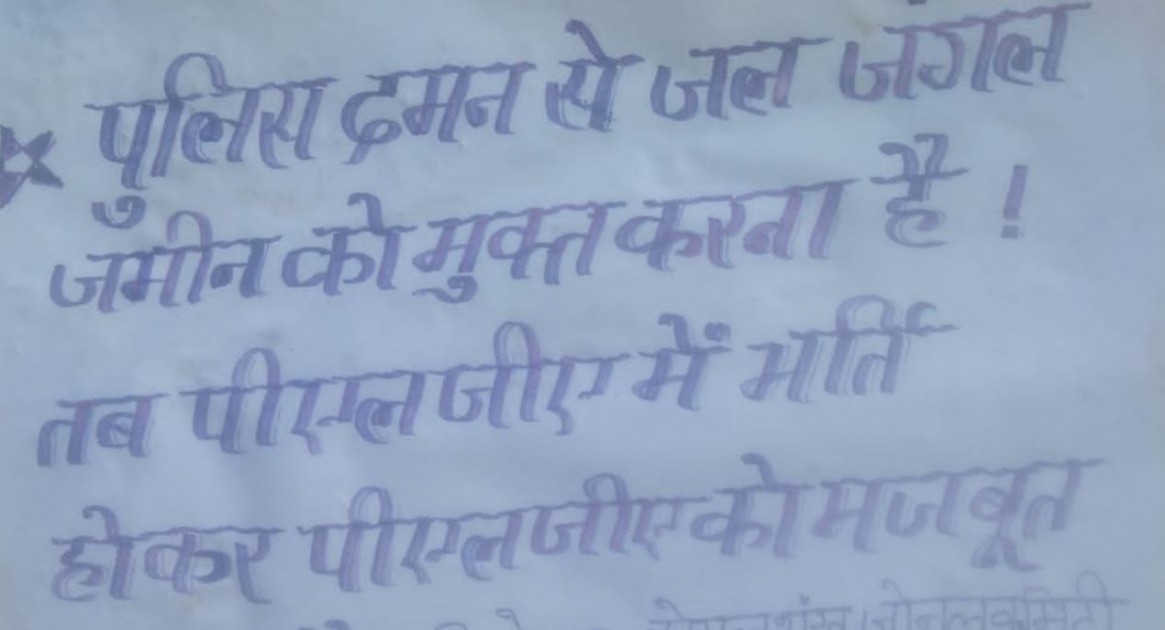 पुलिस दमन से जल जंगल
जमीन को मुक्त करना है !
तब पीएलजीए में भर्ति
होकर पीएलजीए को मजबूत